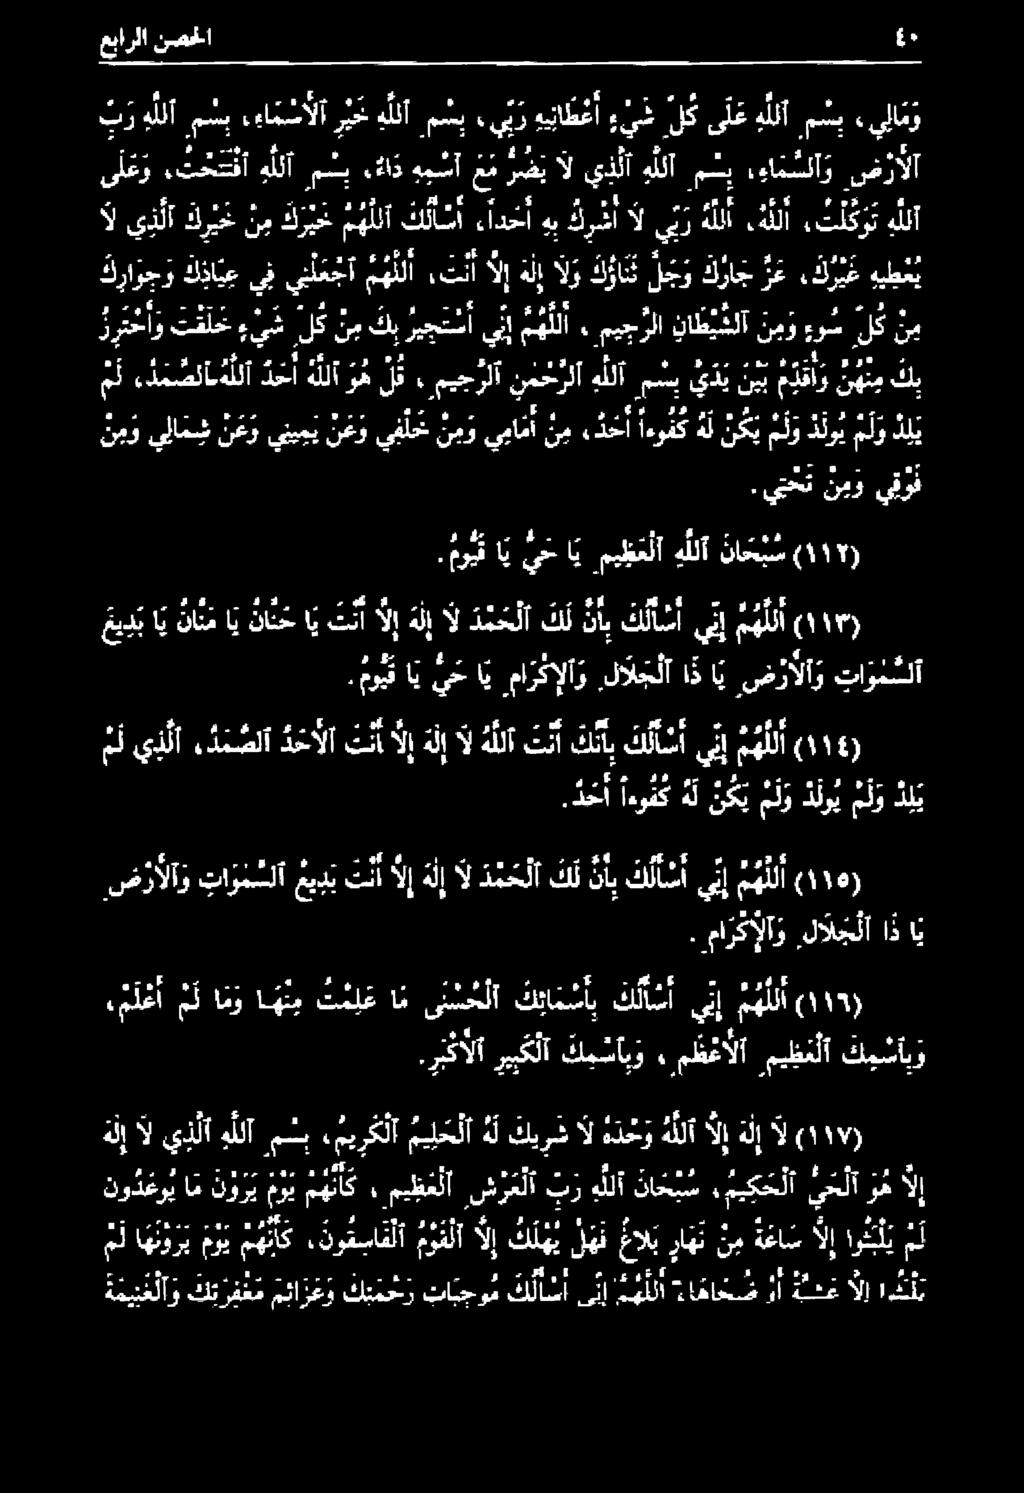 ٤٠ الحصن الرابع
وَمَالِي، بِسْمِ ٱللَّهِ عَلَى كُلِّ شَيْءٍ أَعْطَانِيهِ رَبِّي، بِسْمِ ٱللَّهِ خَيْرِ ٱلأَسْمَاءِ، بِسْمِ ٱللَّهِ رَبِّ
ٱلأَرْضِ وَٱلسَّمَاءِ، بِسْمِ ٱللَّهِ ٱلَّذِي لاَ يَضُرُّ مَعَ ٱسْمِهِ دَاءٌ، بِسْمِ ٱللَّهِ ٱفْتَتَحْتُ، وَعَلَى
ٱللَّهِ تَوَكَّلْتُ، ٱللَّهُ، أَللَّهُ رَبِّي لاَ أُشْرِكُ بِهِ أَحَداً، أَسْأَلُكَ ٱللَّهُمَّ خَيْرَكَ مِنْ خَيْرِكَ ٱلَّذِي لاَ
يُعْطِيهِ غَيْرُكَ، عَزَّ جَارُكَ وَجَلَّ ثَنَاؤُكَ وَلاَ إِلٰهَ إِلاَّ أَنْتَ، أَللَّهُمَّ ٱجْعَلْنِي فِي عِيَاذِكَ وَجِوَارِكَ
مِنْ كُلِّ سُوءٍ وَمِنَ ٱلشَّيْطَانِ ٱلرَّجِيمِ، أَللَّهُمَّ إِنِّي أَسْتَجِيرُ بِكَ مِنْ كُلِّ شَيْءٍ خَلَقْتَ وَأَحْتَرِزُ
بِكَ مِنْهُنَّ وَأُقَدِّمُ بَيْنَ يَدَيَّ بِسْمِ ٱللَّهِ ٱلرَّحْمٰنِ ٱلرَّحِيمِ، قُلْ هُوَ ٱللَّهُ أَحَدٌ ٱللَّهُ ٱلصَّمَدُ، لَمْ
يَلِدْ وَلَمْ يُولَدْ وَلَمْ يَكُنْ لَهُ كُفُوءاً أَحَدٌ، مِنْ أَمَامِي وَمِنْ خَلْفِي وَعَنْ يَمِينِي وَعَنْ شِمَالِي وَمِنْ
فَوْقِي وَمِنْ تَحْتِي.
(١١٢) سُبْحَانَ ٱللَّهِ ٱلْعَظِيمِ يَا حَيُّ يَا قَيُّومُ.
(١١٣) أَللَّهُمَّ إِنِّي أَسْأَلُكَ بِأَنَّ لَكَ ٱلْحَمْدَ لاَ إِلٰهَ إِلاَّ أَنْتَ يَا حَنَّانُ يَا مَنَّانُ يَا بَدِيعَ
ٱلسَّمٰوَاتِ وَٱلأَرْضِ يَا ذَا ٱلْجَلاَلِ وَٱلإِكْرَامِ يَا حَيُّ يَا قَيُّومُ.
(١١٤) أَللَّهُمَّ إِنِّي أَسْأَلُكَ بِأَنَّكَ أَنْتَ ٱللَّهُ لاَ إِلٰهَ إِلاَّ أَنْتَ ٱلأَحَدُ ٱلصَّمَدُ، ٱلَّذِي لَمْ
يَلِدْ وَلَمْ يُولَدْ وَلَمْ يَكُنْ لَهُ كُفُوءاً أَحَدٌ.
(١١٥) أَللَّهُمَّ إِنِّي أَسْأَلُكَ بِأَنَّ لَكَ ٱلْحَمْدَ لاَ إِلٰهَ إِلاَّ أَنْتَ بَدِيعُ ٱلسَّمٰوَاتِ وَٱلأَرْضِ
يَا ذَا ٱلْجَلاَلِ وَٱلإِكْرَامِ.
(١١٦) أَللَّهُمَّ إِنِّي أَسْأَلُكَ بِأَسْمَائِكَ ٱلْحُسْنَى مَا عَلِمْتُ مِنْهَا وَمَا لَمْ أَعْلَمْ،
وَبِٱسْمِكَ ٱلْعَظِيمِ ٱلأَعْظَمِ، وَبِٱسْمِكَ ٱلْكَبِيرِ ٱلأَكْبَرِ.
(١١٧) لاَ إِلٰهَ إِلاَّ ٱللَّهُ وَحْدَهُ لاَ شَرِيكَ لَهُ ٱلْحَلِيمُ ٱلْكَرِيمُ، بِسْمِ ٱللَّهِ ٱلَّذِي لاَ إِلٰهَ
إِلاَّ هُوَ ٱلْحَيُّ ٱلْحَكِيمُ، سُبْحَانَ ٱللَّهِ رَبِّ ٱلْعَرْشِ ٱلْعَظِيمِ، كَأَنَّهُمْ يَوْمَ يَرَوْنَ مَا يُوعَدُونَ
لَمْ يَلْبَثُوا إِلاَّ سَاعَةً مِنْ نَهَارٍ بَلاَغٌ فَهَلْ يُهْلَكُ إِلاَّ ٱلْقَوْمُ ٱلْفَاسِقُونَ، كَأَنَّهُمْ يَوْمَ يَرَوْنَهَا لَمْ
يَلْبَثُوا إِلاَّ عَشِيَّةً أَوْ ضُحَاهَا، أَللَّهُمَّ إِنِّي أَسْأَلُكَ مُوجِبَاتِ رَحْمَتِكَ وَعَزَائِمَ مَغْفِرَتِكَ وَٱلْغَنِيمَةَ